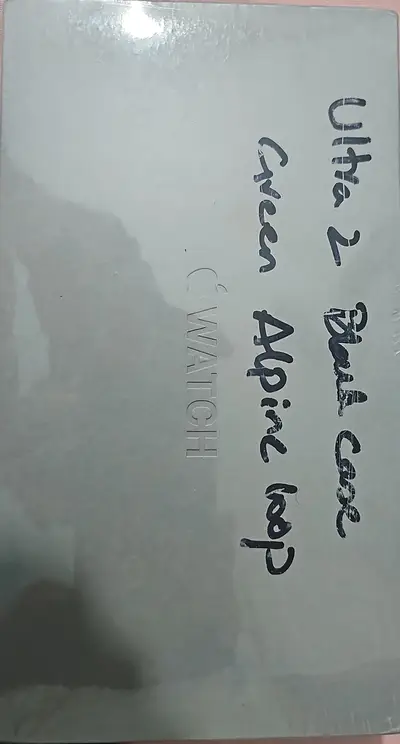 Ultra 2 Black case
Green Alpine loop
WATCH